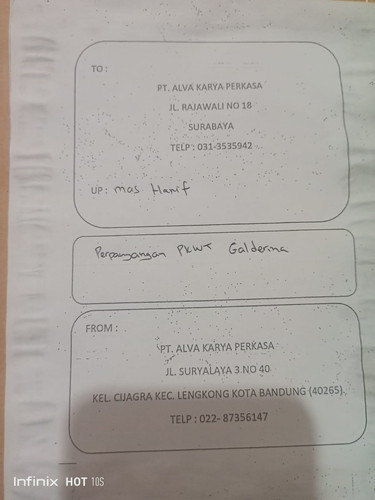 TO :
PT. ALVA KARYA PERKASA
JL. RAJAWALI NO 18
SURABAYA
TELP : 031-3535942
UP : mas Hanif
Perpanjangan PKWT Galderma
FROM :
PT. ALVA KARYA PERKASA
JL. SURYALAYA 3 NO 40
KEL. CIJAGRA KEC. LENGKONG KOTA BANDUNG (40265).
TELP : 022- 87356147
Infinix HOT 10S